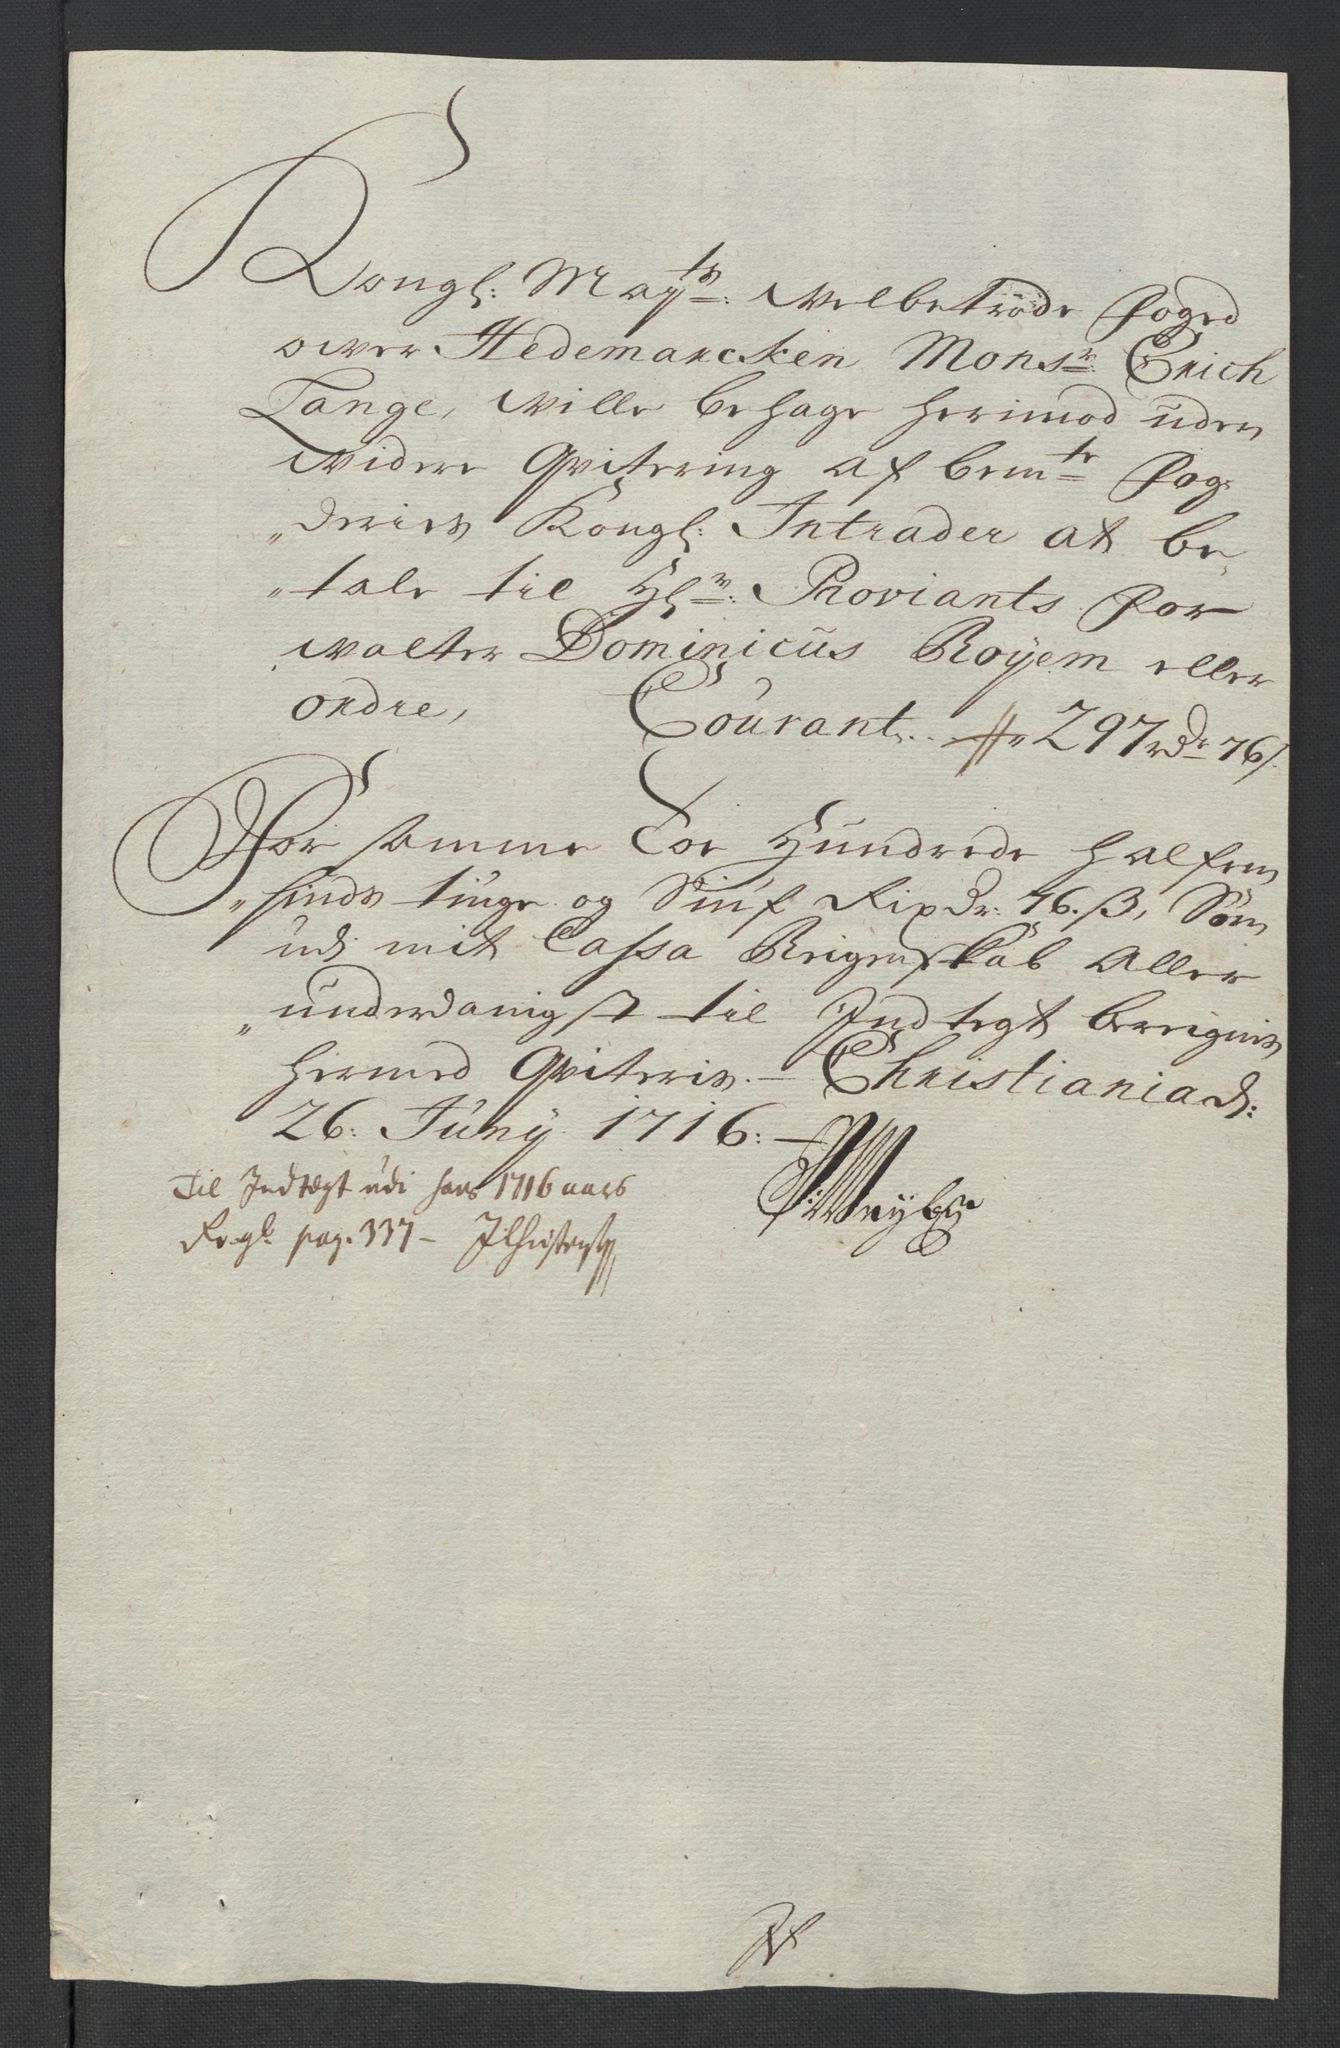 Kongl: May:ts Velbetrode Foged
over Hedemarcken Monsr: Erich
Lange, Ville behage herimod uden
Videre Qvitering af bemte Fog„
„deries Kongl: Intrader at be„
„tale til Hr: Proviants For
valter Dominicus Royem eller
ordre, Courant.. 297 rdr 76 s.
For samme Toe Hundrede halfem„
„sinds tiuge og Siuf Rixdr: 76. ß, Som
udj mit Cassa Reigenskab Aller
„underdanigst til Indtegt bereignes
hermed Qviteris. – Christiania d:
26: Juny 1716: –
Til Indtegt udi hans 1716 aars
Regl. pag. 337 –